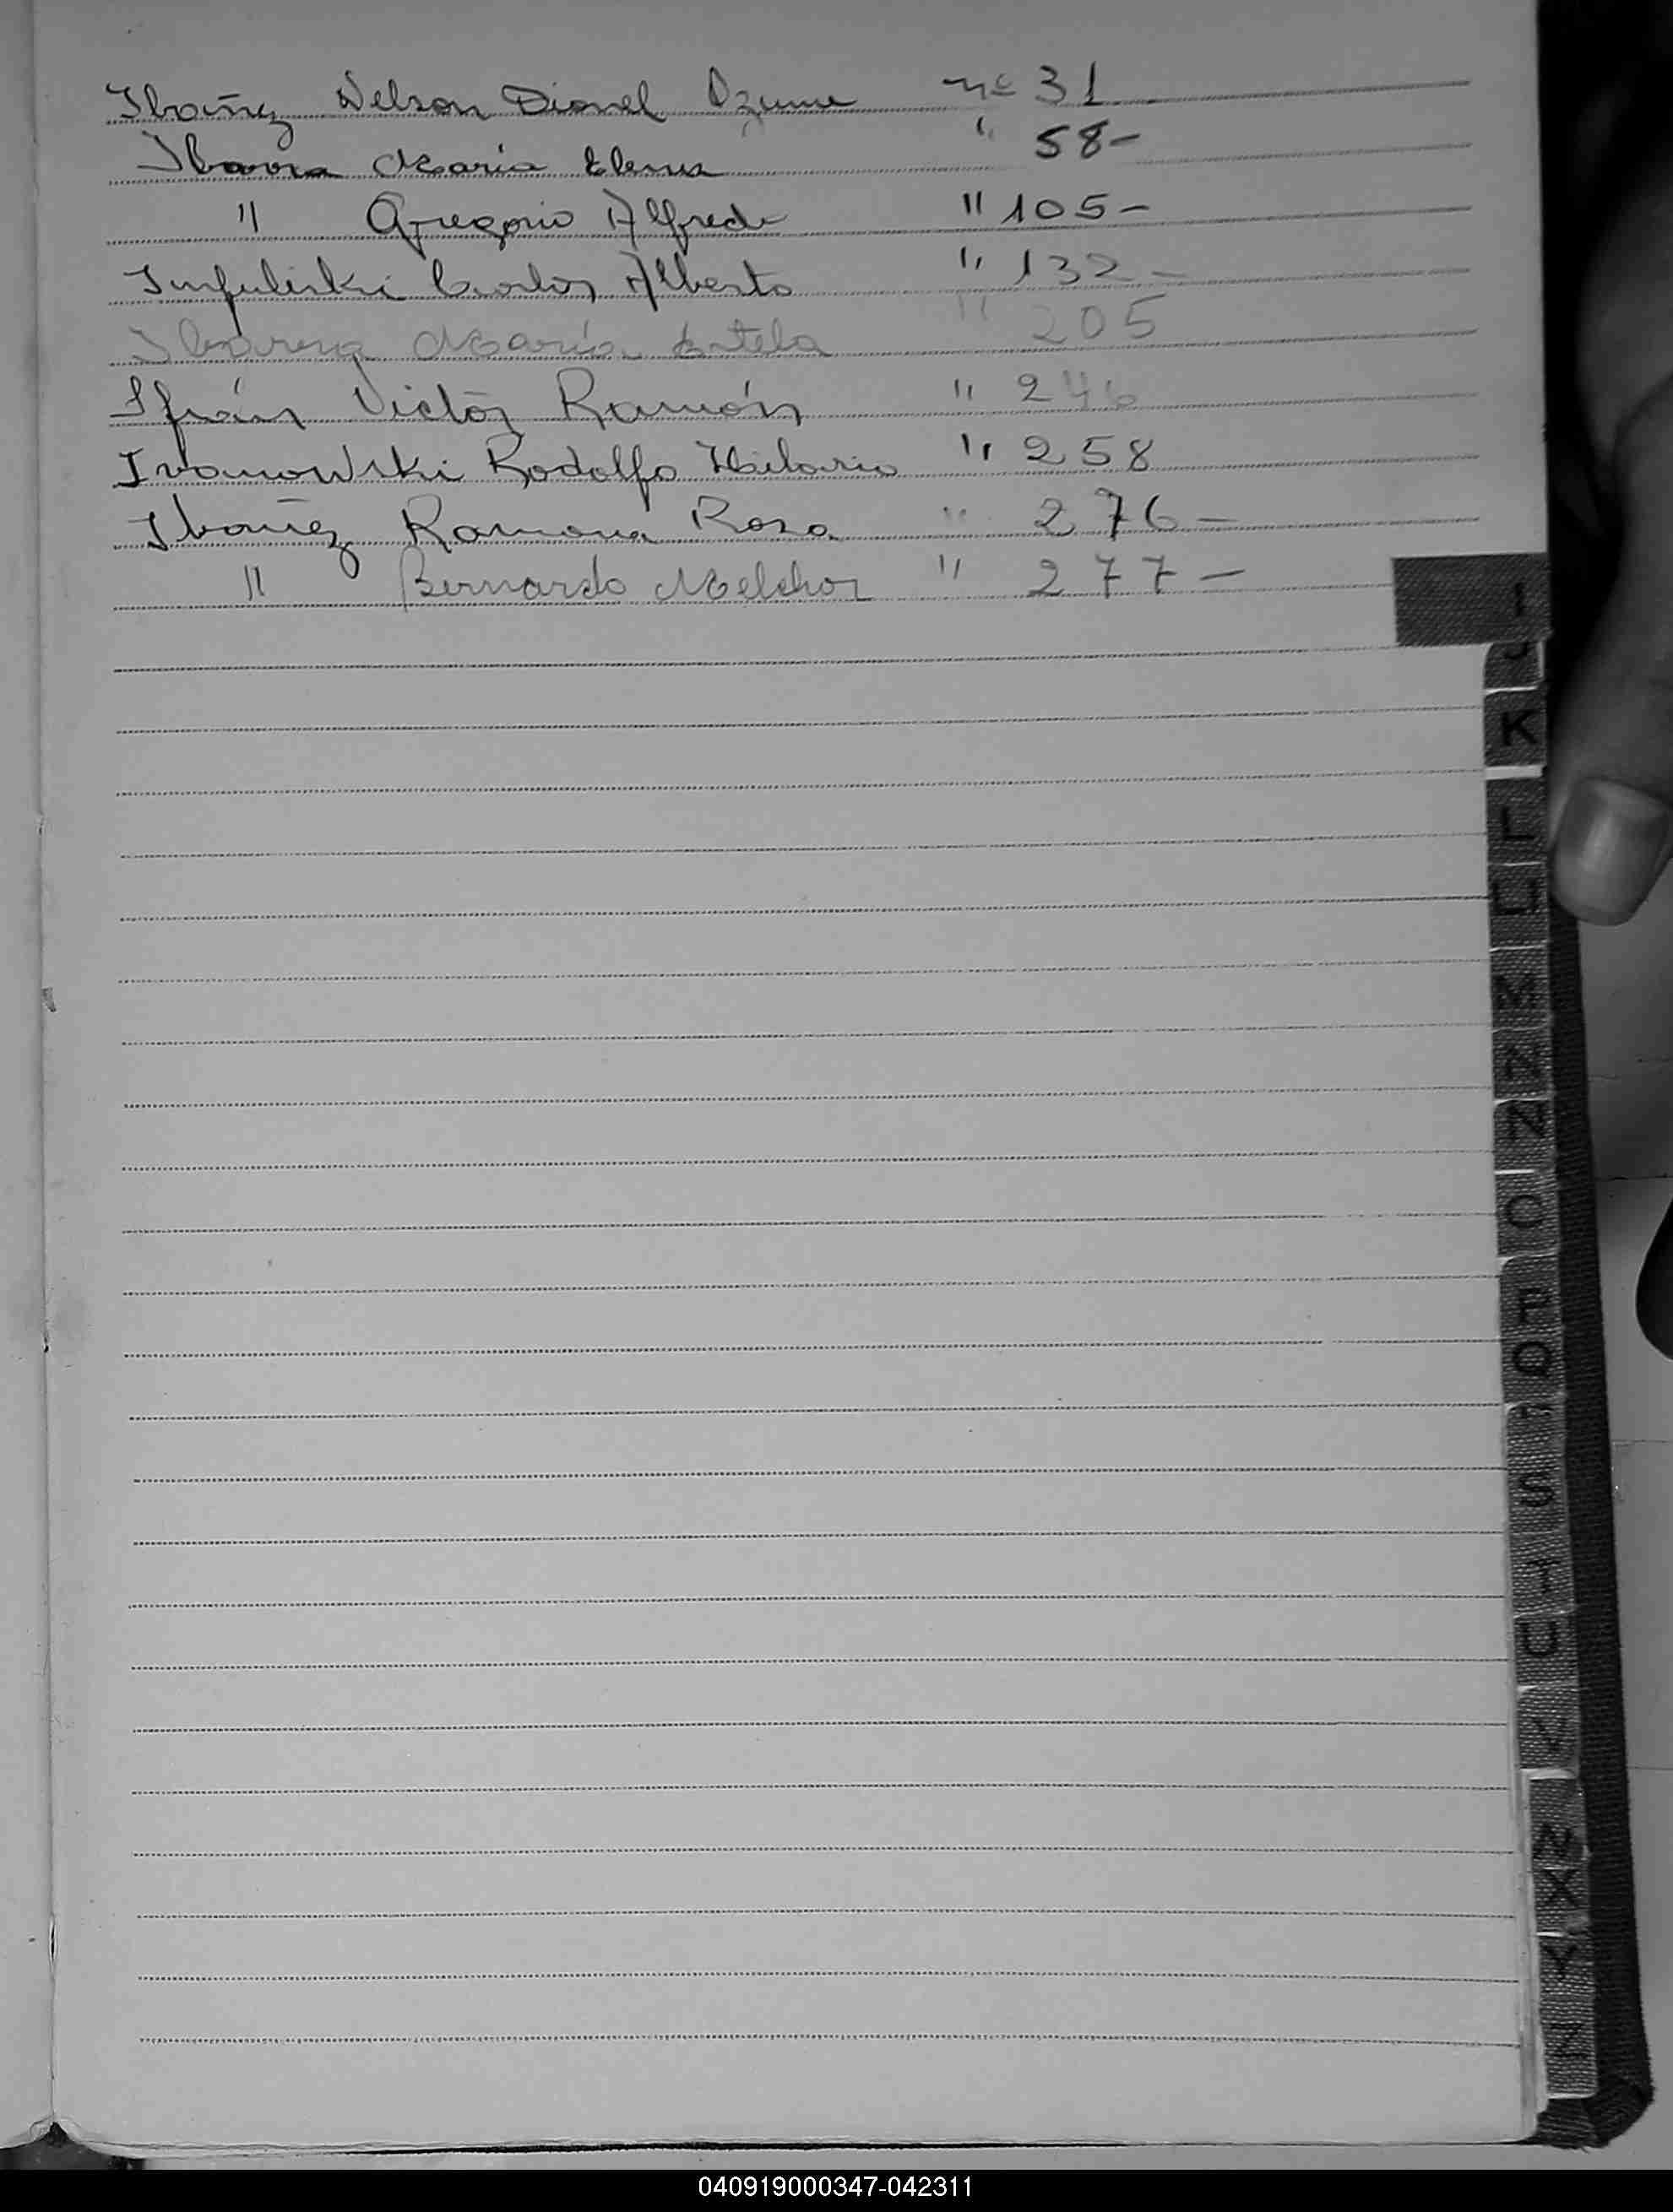 Ibañez Nelson Dionel nº 31
Ibarra Maria Elena " 58-
" Gregorio Alfredo " 105-
Carlos Alberto " 132-
María Estela " 205
Ifrán Victor Ramón " 246
Ivanowski Rodolfo Hilario " 258
Ibañez Ramona Rosa " 276-
" Bernardo Melchor " 277-
I
J
K
L
LL
M
N
Ñ
O
P
Q
R
S
T
U
V
W
X
Y
Z
040919000347-042311